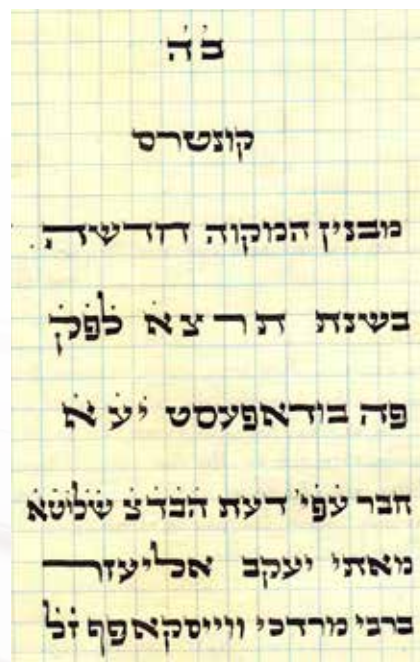 ב׳ה׳
קונטרס
מבנין המקוה חדשה.
בשנת תרצא לפ׳ק׳
פה בודאפעסט י׳ע׳א׳
חבר ע׳פ׳י׳ דעת ה׳ב׳ד׳צ׳ ש׳ל׳י׳ט׳א׳
מאתי יעקב אליעזר
ברבי מרדכי ווייסקאפף ז׳ל׳